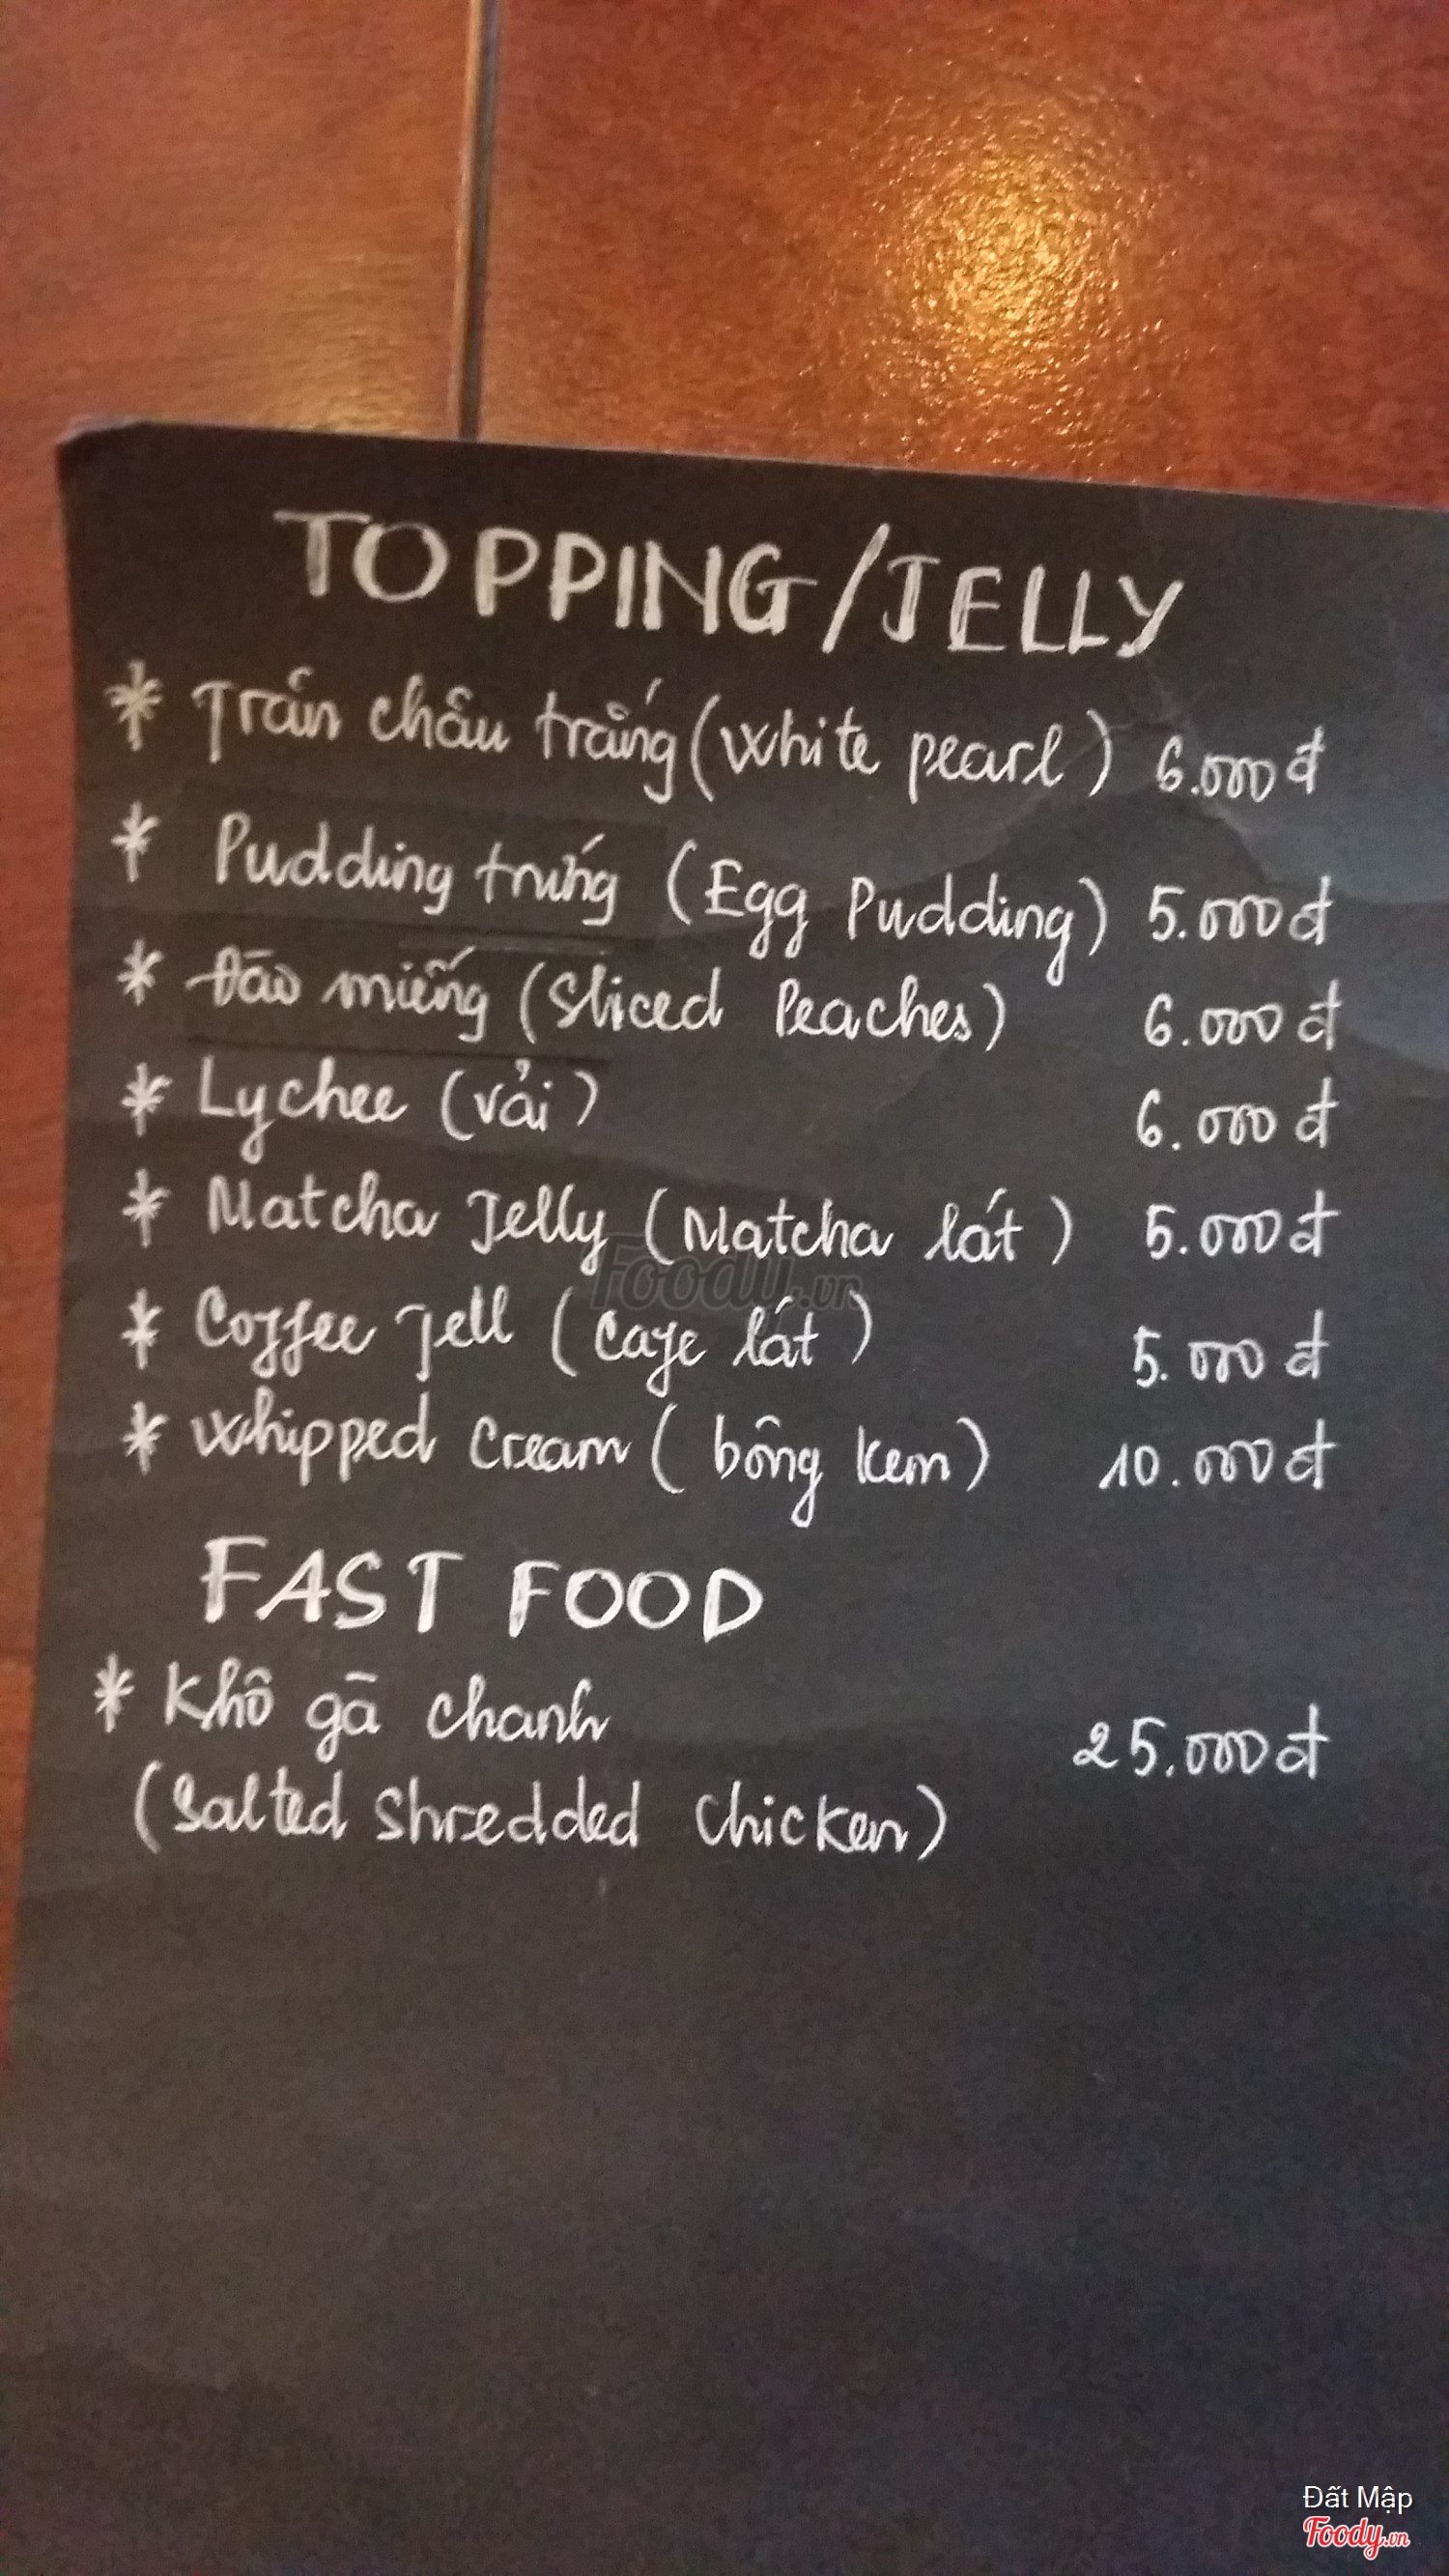 TOPPING/JELLY
* Trân châu trắng (White pearl) 6.000đ
* Pudding trứng (Egg Pudding) 5.000đ
* Đào miếng (Sliced Peaches) 6.000đ
* Lychee (vải) 6.000đ
* Matcha Jelly (Matcha lát) 5.000đ
* Coffee Jell (Cafe lát) 5.000đ
* Whipped Cream (bông kem) 10.000đ
FAST FOOD
* Khô gà chanh 25.000đ
(Salted Shredded Chicken)
Foody.vn
Đất Mập
Foody.vn